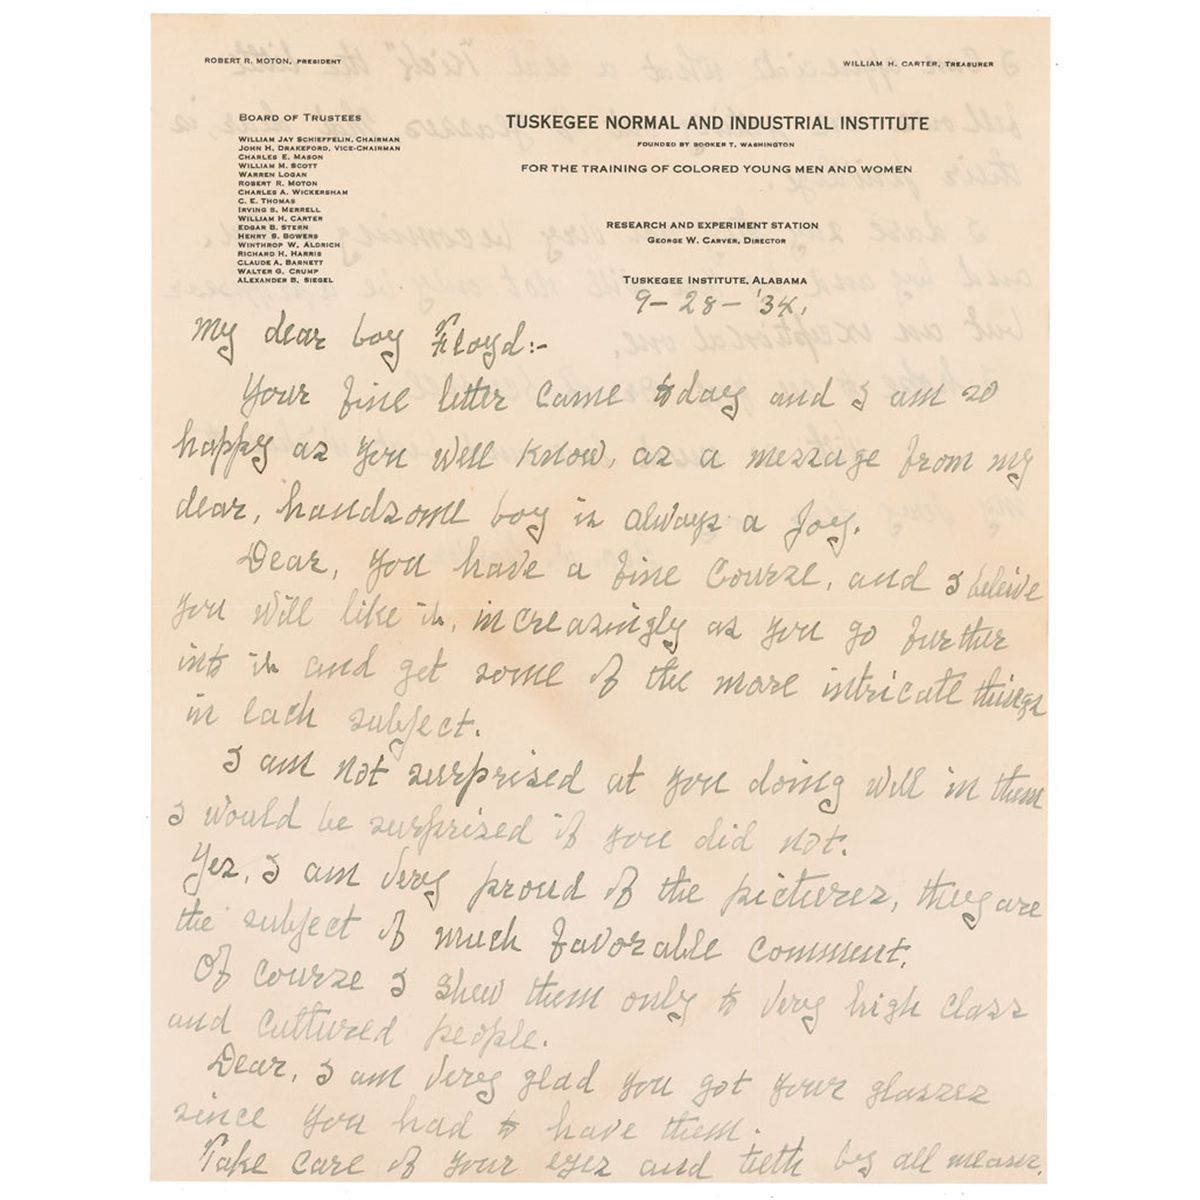 ROBERT R. MOTON, PRESIDENT
WILLIAM H. CARTER, TREASURER
BOARD OF TRUSTEES
WILLIAM JAY SCHIEFFELIN, CHAIRMAN
JOHN H. DRAKEFORD, VICE-CHAIRMAN
CHARLES E. MASON
WILLIAM M. SCOTT
WARREN LOGAN
ROBERT R. MOTON
CHARLES A. WICKERSHAM
C. E. THOMAS
IRVING S. MERRELL
WILLIAM H. CARTER
EDGAR B. STERN
HENRY S. BOWERS
WINTHROP W. ALDRICH
RICHARD H. HARRIS
CLAUDE A. BARNETT
WALTER G. CRUMP
ALEXANDER B. SIEGEL
TUSKEGEE NORMAL AND INDUSTRIAL INSTITUTE
FOUNDED BY BOOKER T. WASHINGTON
FOR THE TRAINING OF COLORED YOUNG MEN AND WOMEN
RESEARCH AND EXPERIMENT STATION
GEORGE W. CARVER, DIRECTOR
TUSKEGEE INSTITUTE, ALABAMA
9-28-'34.
My dear boy Floyd:-
Your fine letter came today and I am so
happy as you well know, as a message from my
dear, handsome boy is always a joy.
Dear, you have a fine course, and I beleive
you will like it, increasingly as you go further
into it and get some of the more intricate things
in each subject.
I am not surprised at you doing well in them
I would be surprized if you did not.
Yes, I am very proud of the pictures, they are
the subject of much favorable comment.
Of course I shew them only to very high class
and cultured people.
Dear, I am very glad you got your glasses
since you had to have them.
Take care of your eyes and teeth by all means.